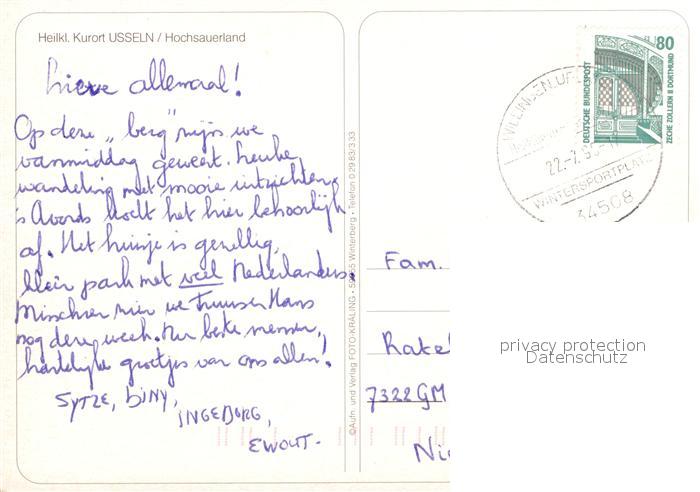 Heilkl. Kurort USSELN / Hochsauerland
Lieve allemaal!
Op deze „berg" zijn we
vanmiddag geweest. Leuke
wandeling met mooie uitzichten.
's Avonds koelt het hier behoorlijk
af. Het huisje is gezellig,
klein park met veel Nederlanders.
Misschien zien we Truus en Hans
nog deze week. De beste mensen,
hartelijke groetjes van ons allen!
SYTZE, DINY,
INGEBORG,
EWOUT.
©Aufn. und Verlag FOTO-KRÄLING Winterberg Telefon 0 29 83/3 33
80
DEUTSCHE BUNDESPOST
ZECHE ZOLLERN II DORTMUND
WILLINGEN, UPL
22.-7.9
WINTERSPORTPLATZ
34508
Fam.
Rakel
7322 GM
privacy protection
Datenschutz